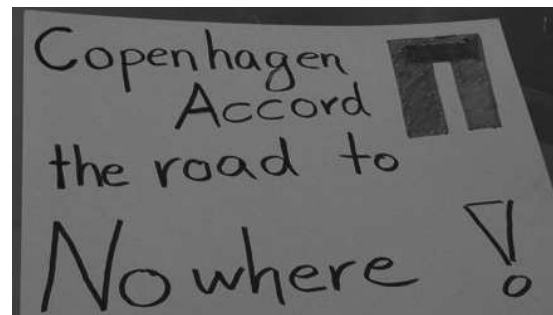 Copenhagen
Accord
the road to
Nowhere !